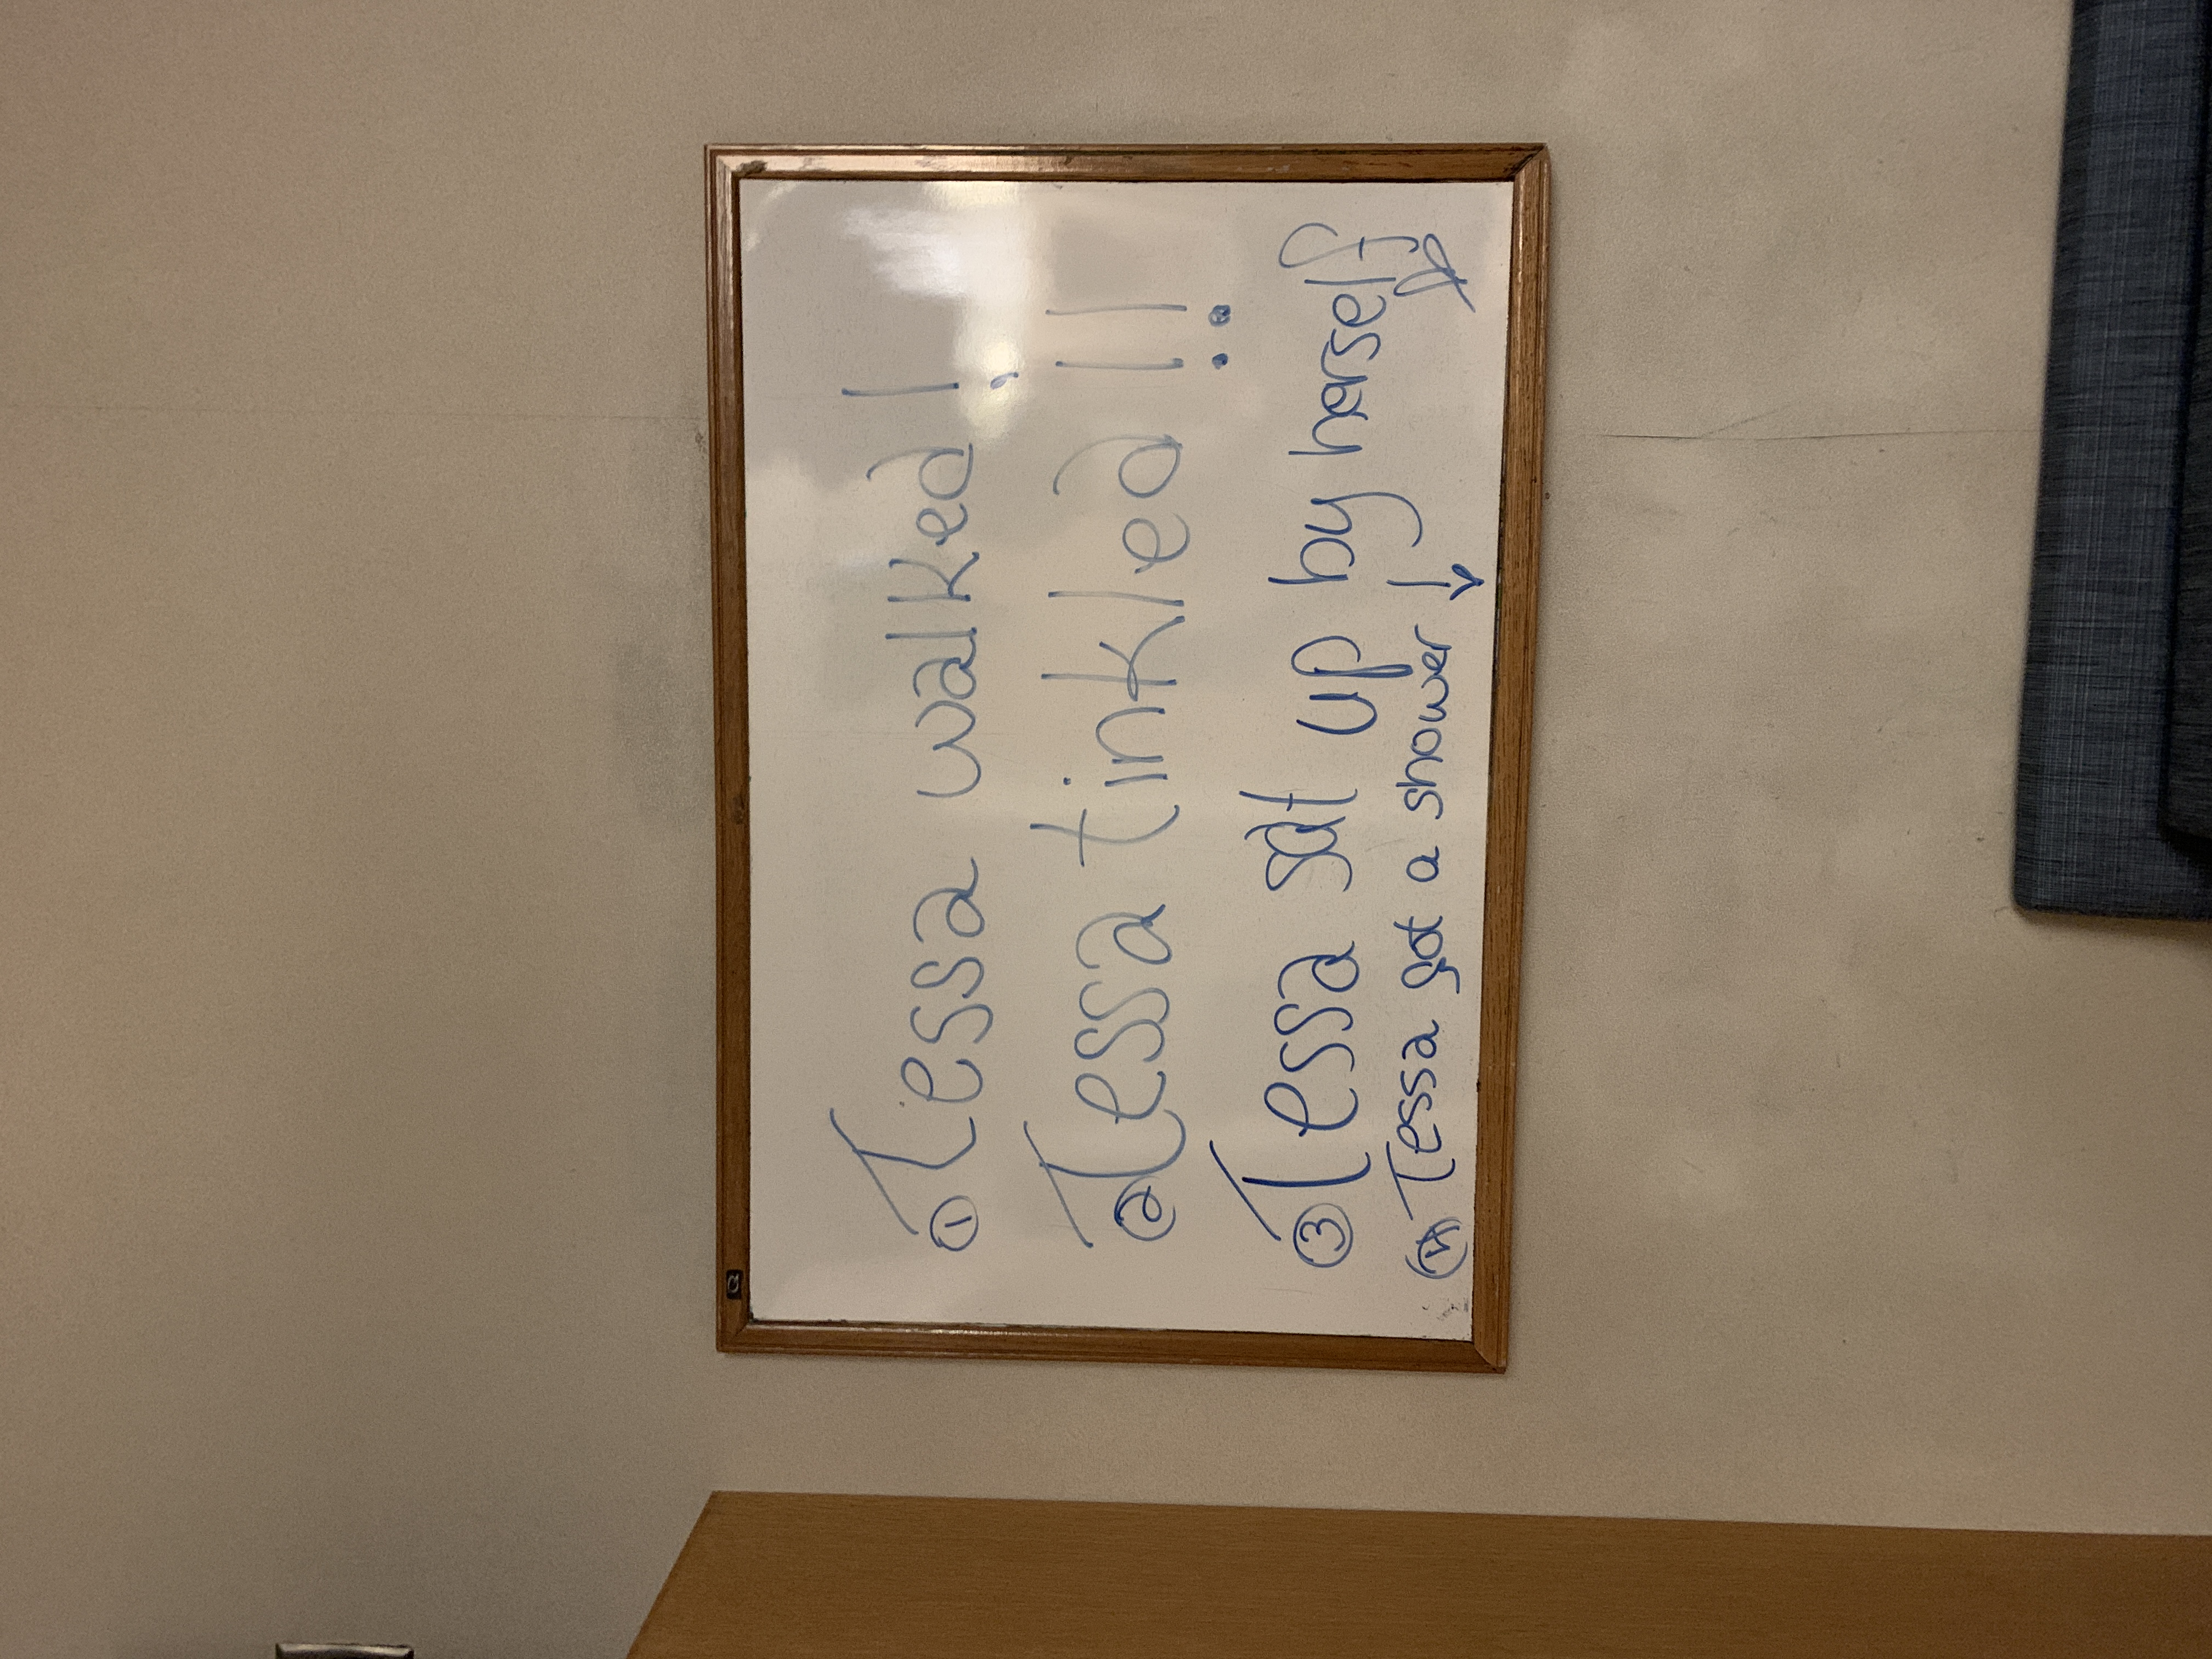 ① Tessa walked!
② Tessa tinkled!!
③ Tessa sat up by herself
④ Tessa got a shower!